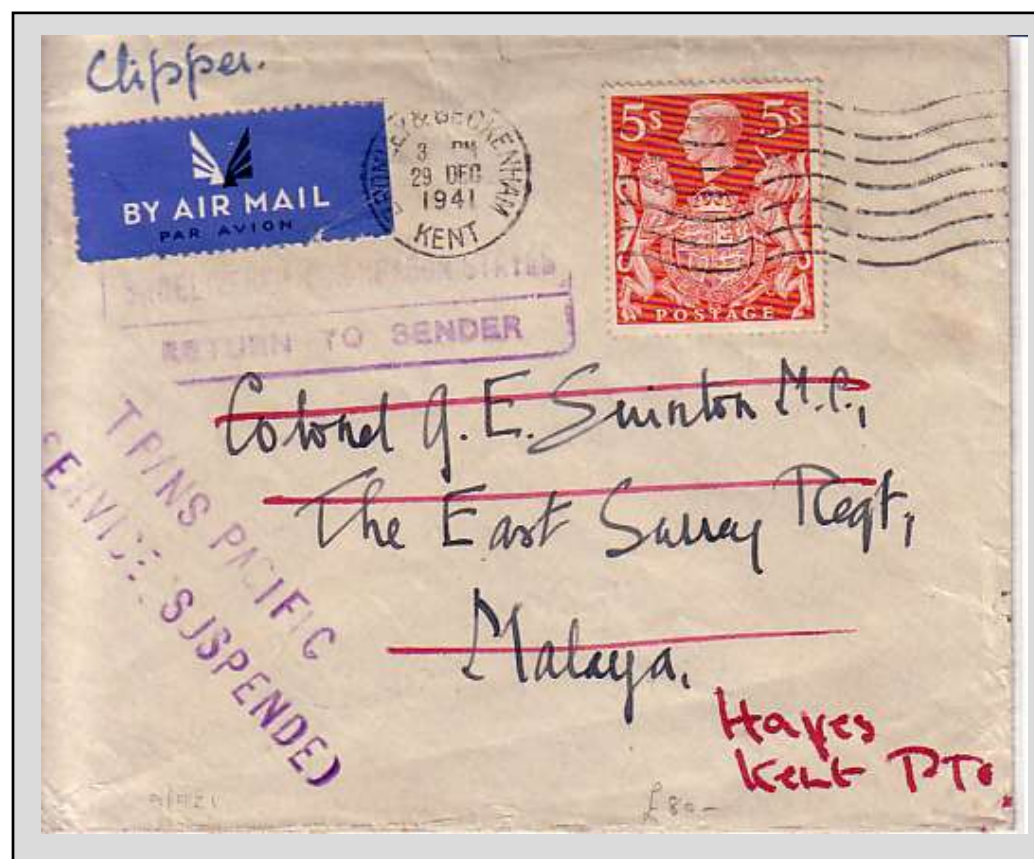 Clipper.
BY AIR MAIL
PAR AVION
& BECKENHAM
3 PM
29 DEC
1941
KENT
5s 5s
POSTAGE
RETURN TO SENDER
TRANS PACIFIC
SERVICE SUSPENDED
Colonel G. E. Swinton M.C.,
The East Surrey Regt,
Malaya.
Hayes
Kent PTO
£80-